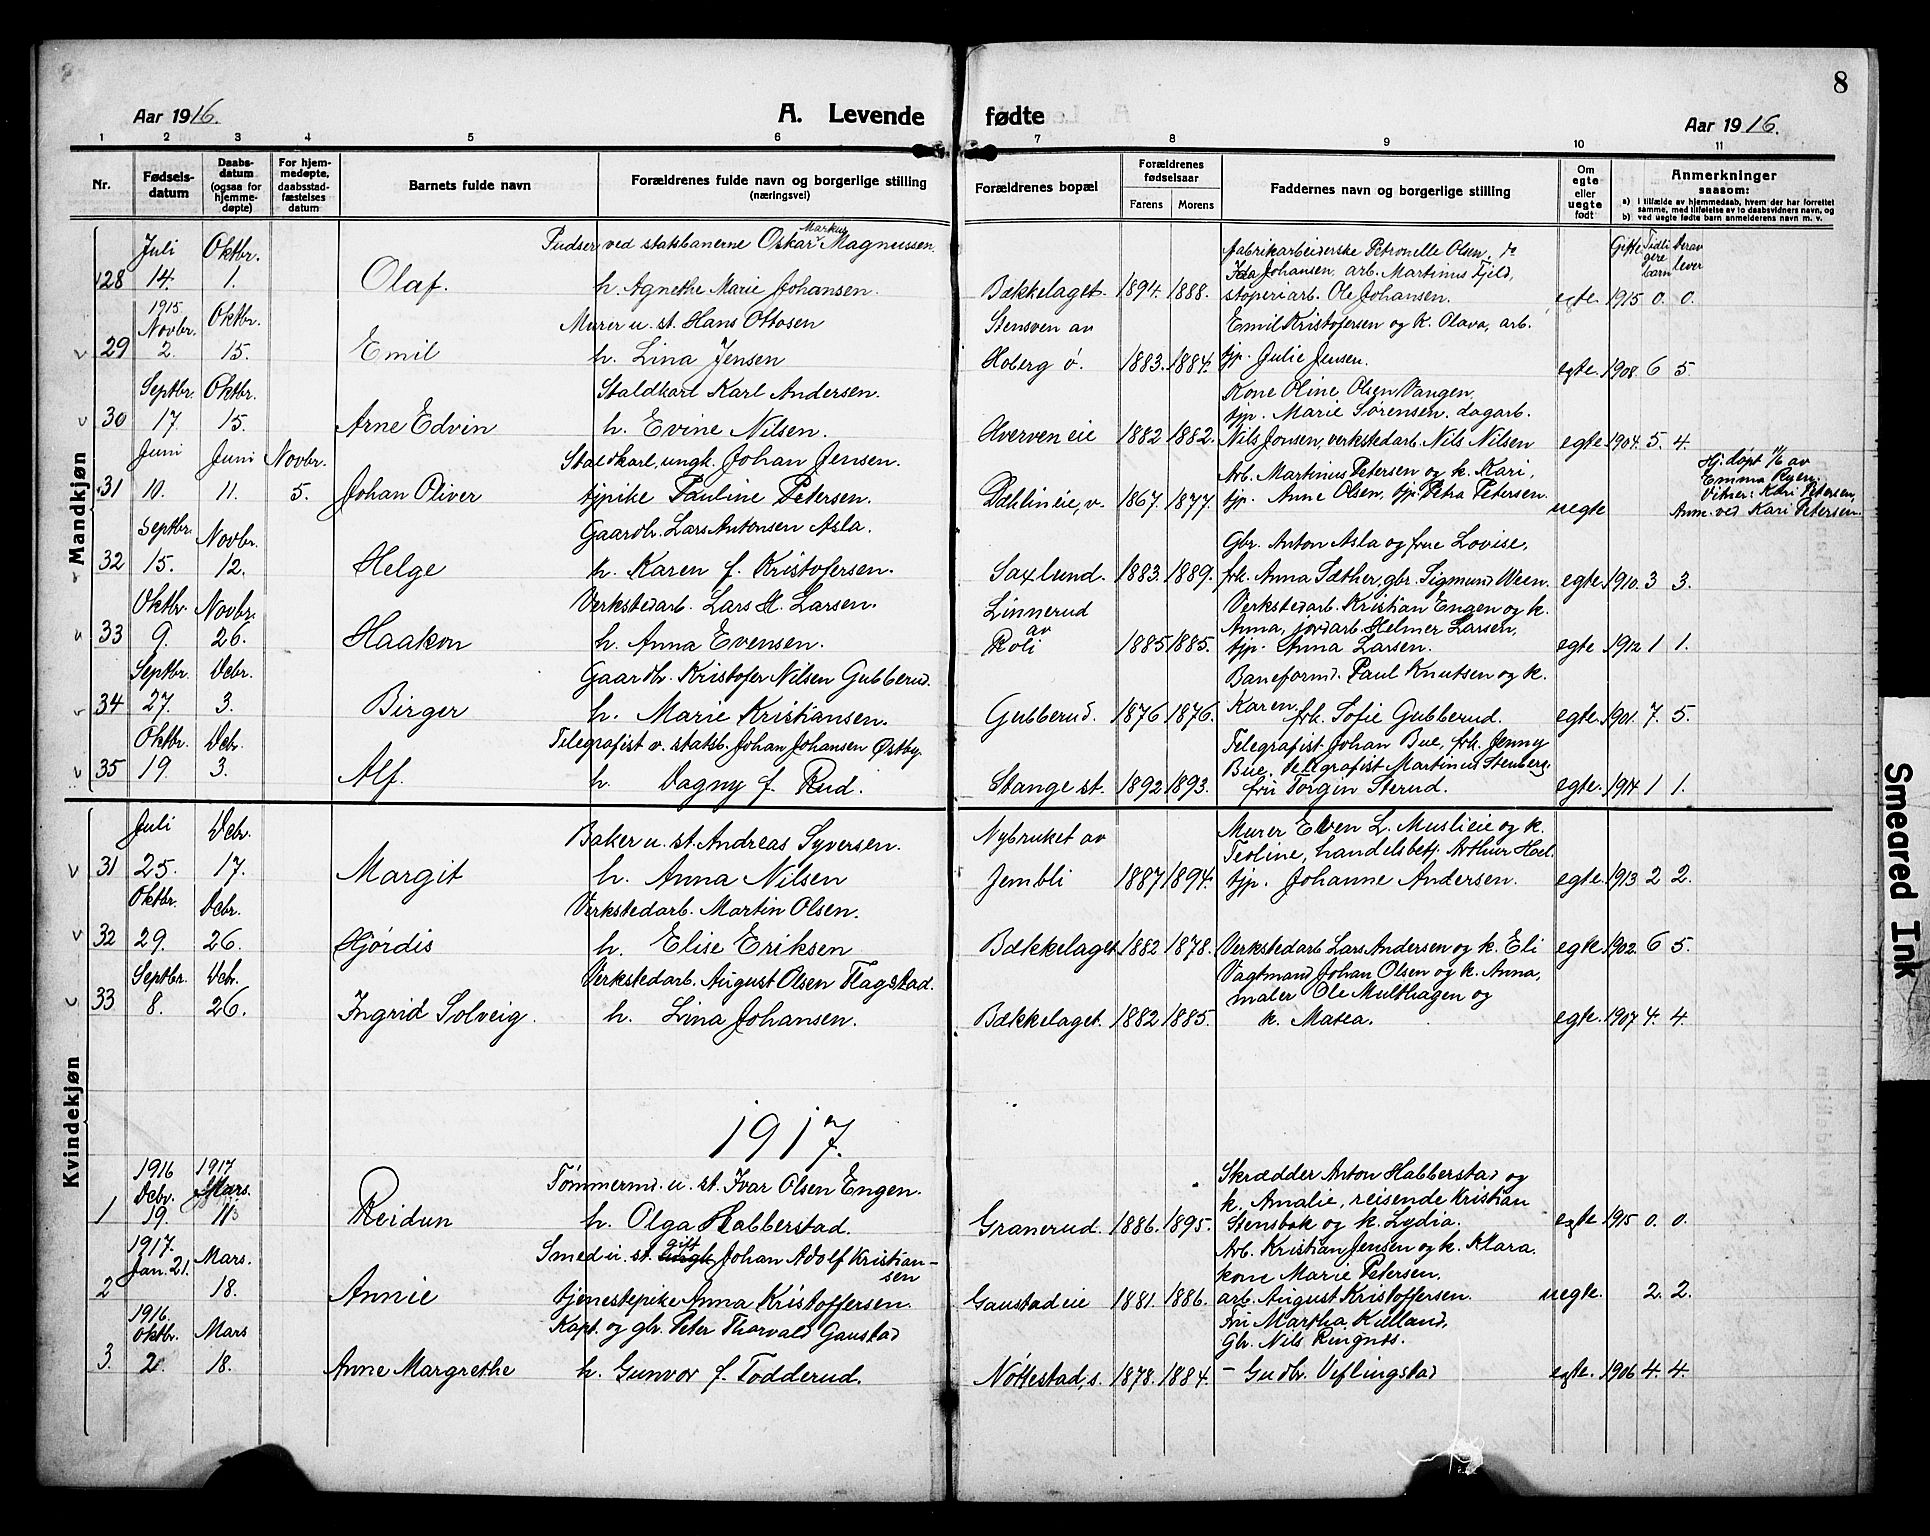 8
Aar 1916.
A. Levende fødte
Aar 1916.
1 2 3 4 5 6 7 8 9 10 11
Nr.
Fødsels-
datum
Daabs-
datum
(ogsaa for
hjemme-
døpte)
For hjem-
medøpte,
daabsstad-
fæstelses
datum
Barnets fulde navn
Forældrenes fulde navn og borgerlige stilling
(næringsvei)
Forældrenes bopæl
Forældrenes
fødselsaar
Farens Morens
Faddernes navn og borgerlige stilling
Om
egte
eller
uegte
født
Anmerkninger
saasom:
a) I tilfælde av hjemmedaab, hvem der har forrettet
samme, med tilføielse av to daabsvidners navn, og
b) ved uegte fødte barn anmelderens navn m. v.
Gifte Tidli gere barn Derav lever
Mandkjøn
Juli Oktbr. Pudser ved statsbanerne Oskar Markus Magnussen
fabrikarbeiderske Petronelle Olsen,
128 14. 1. Olaf. h. Agnethe Marie Johansen. Bækkelaget. 1894. 1888.
Ida Johansen, arb. Martinus Fjeld,
stoperiarb. Ole Johansen. egte 1915 0. 0.
1915 Novbr. Oktbr. Murer u. st. Hans Ottosen Stensven av
Emil Kristofersen og k. Olava, arb.
29 2. 15. Emil h. Lina Jensen Hoberg ö. 1883. 1884. tjp. Julie Jensen. egte. 1908 6 5.
Septbr. Oktbr. Staldkarl Karl Andersen.
Kone Oline Olsen Vangen,
tjp. Marie Sørensen. dagarb.
30 17. 15. Arne Edvin h. Evine Nilsen. Averven eie 1882 1882. Nils Jonsen, verkstedarb. Nils Nilsen egte 1904. 5. 4.
Juni Juni Novbr. Staldkarl, ungk. Johan Jensen.
Arb. Martinus Petersen og k. Kari,
31 10. 11. 5. Johan Oliver tjpike Pauline Petersen. Dæhlin eie, v. 1867. 1877. tjp. Anne Olsen, tjp. Petra Petersen. uegte
Hj. døpt 11/6 av
Emma Ryen;
Vitner: Kari Petersen,
Anm. ved Kari Petersen.
Septbr. Novbr. Gaardbr. Lars Antonsen Asla.
Gbr. Anton Asla og frue Lovise,
32 15. 12. Helge h. Karen f. Kristofersen. Saxlund. 1883. 1889. frk. Anna Sæther, gbr. Sigmund Ween. egte. 1910. 3 3.
Oktbr. Novbr. Verkstedarb. Lars H. Larsen. Linnerud
Verkstedarb. Kristian Engen og k.
av
33 9. 26. Haakon h. Anna Evensen. Roli 1885 1885.
Anna, jordarb. Helmer Larsen,
tjp. Anna Larsen. egte 1912 1 1.
Septbr. Decbr. Gaardbr. Kristofer Nilsen Gubberud.
Baneformd. Paul Knutsen og k.
34 27. 3. Birger h. Marie Kristiansen. Gubberud. 1876 1876. Karen, frk. Sofie Gubberud. egte. 1901. 7. 5.
Oktbr. Decbr. Telegrafist v. statsb. Johan Johansen Østby.
Telegrafist Johan Bue, frk. Jenny
Bue, telegrafist Martinus Stenberg,
35 19. 3. Alf. h Dagny f. Rud. Stange st. 1892 1893. fru Torgin Sterud. egte. 1914 1 1.
Kvindekjøn
Juli Dcbr. Baker u. st. Andreas Syversen. Nybruket av
Murer Even L. Muslieie og k.
Teoline, handelsbetj. Arthur Hoel.
31 25. 17. Margit h. Anna Nilsen Jembli 1887 1894. tjp. Johanne Andersen. egte. 1913 2 2.
Oktbr. Dcbr. Verkstedarb. Martin Olsen.
32 29. 26. Hjørdis h. Elise Eriksen Bækkelaget 1882 1878. Verkstedarb. Lars Andersen og k. Eli egte. 1902. 6 5.
Septbr. Dcbr. Verkstedarb. August Olsen Flagstad.
Vagtmand Johan Olsen og k. Anna,
maler Ole Multhagen og
33 8. 26. Ingrid Solveig. h. Lina Johansen. Bækkelaget. 1882 1885. k. Matea. egte. 1907 4. 4.
1917.
1916 1917
Dcbr. Mars. Tømmermd. u. st. Ivar Olsen Engen.
Skrædder Anton Habberstad og
k. Amalie, reisende Kristian
1 19. 11. Reidun h. Olga Habberstad. Granerud. 1886. 1895. Stensbak og k. Lydia. egte 1915 0. 0.
1917. Jan. 21. Mars. Smed u. st. ungk. gift Johan Adolf Kristian-
sen
Arb. Kristian Jensen og k. Klara.
kone Marie Petersen,
2 18. Annie tjenestepike Anna Kristoffersen. Gaustad eie 1881. 1886. arb. August Kristoffersen. uegte. 2. 2.
1916. Oktbr. Mars Kapt. og gbr. Peter Thorvald Gaustad
Fru Martha Kielland,
Gbr. Nils Ringnes.
3. 2. 18. Anne Margrethe h. Gunvor f. Todderud. Nöttestad, s. 1878. 1884. – Gudbr. Viflingstad egte. 1906 4. 4.
Smeared Ink